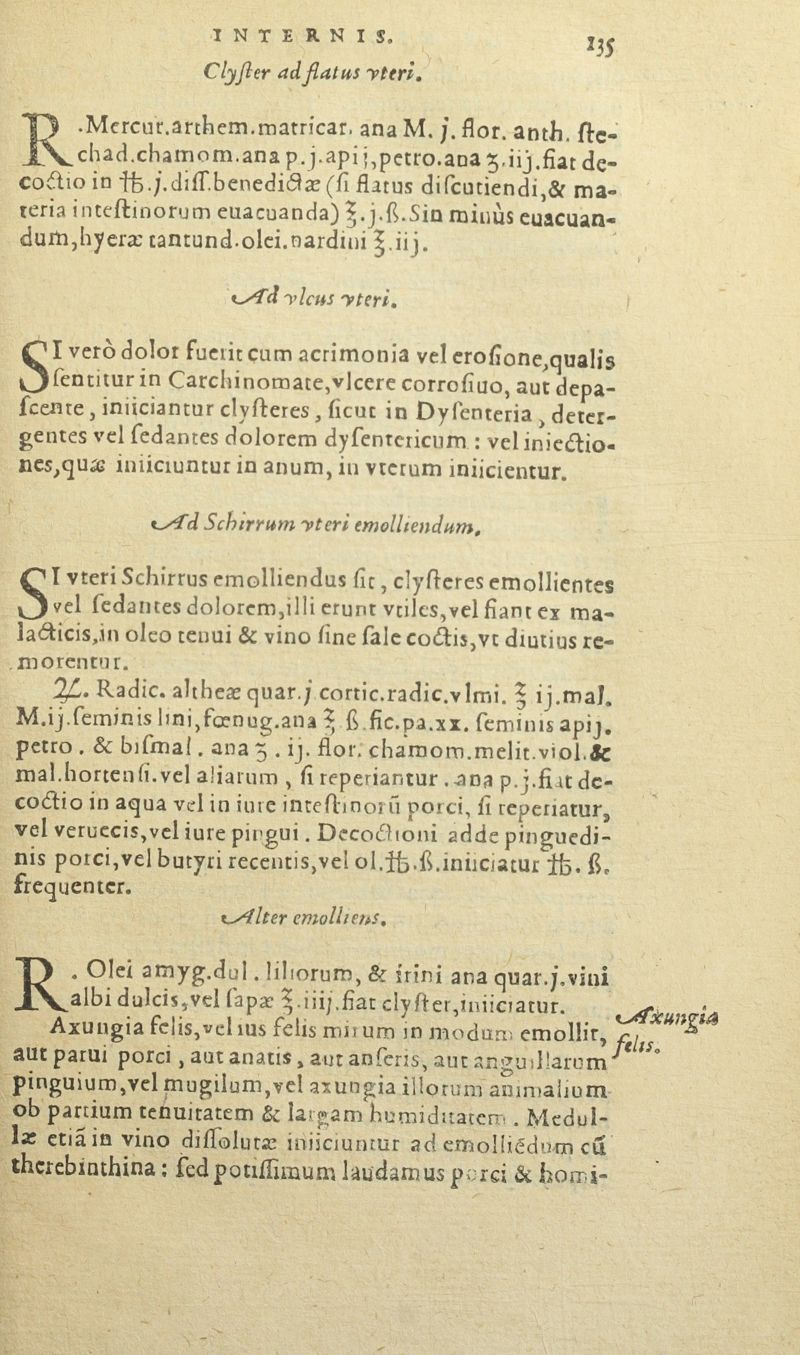 INTERNIS. 135
Clyſter ad flatus vteri.
R .Mercur.arthem.matricar. ana M. j. flor. anth. ſte-
chad.chamom.ana p.j.apij,petro.ana ʒ.iij.fiat de-
coctio in ℔.j.diſſ.benedictæ (ſi flatus diſcutiendi,& ma-
teria inteſtinorum euacuanda) ℥.j.ß.Sin minùs euacuan-
dum,hyeræ tantund.olei.nardini ℥.iij.
Ad vlcus vteri.
SI verò dolor fuerit cum acrimonia vel eroſione,qualis
ſentitur in Carchinomate,vlcere corroſiuo, aut depa-
ſcente, iniiciantur clyſteres, ſicut in Dyſenteria, deter-
gentes vel ſedantes dolorem dyſentericum : vel iniectio-
nes,quæ iniiciuntur in anum, in vterum iniicientur.
Ad Schirrum vteri emolliendum.
SI vteri Schirrus emolliendus ſit, clyſteres emollientes
vel ſedantes dolorem,illi erunt vtiles,vel fiant ex ma-
lacticis,in oleo tenui & vino ſine ſale coctis,vt diutius re-
morentur.
♃. Radic. altheæ quar.j cortic.radic.vlmi. ℥ ij.mal.
M.ij.ſeminis lini,fœnug.ana ℥ ß.fic.pa.xx. ſeminis apij.
petro. & biſmal. ana ʒ . ij. flor. chamom.melit.viol.&
mal.hortenſi.vel aliarum , ſi reperiantur .ana p.j.fiat de-
coctio in aqua vel in iure inteſtinorũ porci, ſi reperiatur,
vel veruecis,vel iure pingui. Decoctioni adde pinguedi-
nis porci,vel butyri recentis,vel ol.℔.ß.iniiciatur ℔. ß.
frequenter.
Alter emolliens.
R . Olei amyg.dul. liliorum, & irini ana quar.j.vini
albi dulcis,vel ſapæ ℥.iiij.fiat clyſter,iniiciatur.
Axungia felis,vel ius felis mirum in modum emollit,
Axungia
felis.
aut parui porci, aut anatis, aut anſeris, aut anguillarum
pinguium,vel mugilum,vel axungia illorum animalium
ob partium tenuitatem & largam humiditatem. Medul-
læ etiã in vino diſſolutæ iniiciuntur ad emolliẽdum cũ
therebinthina : ſed potiſſimum laudamus porci & homi-